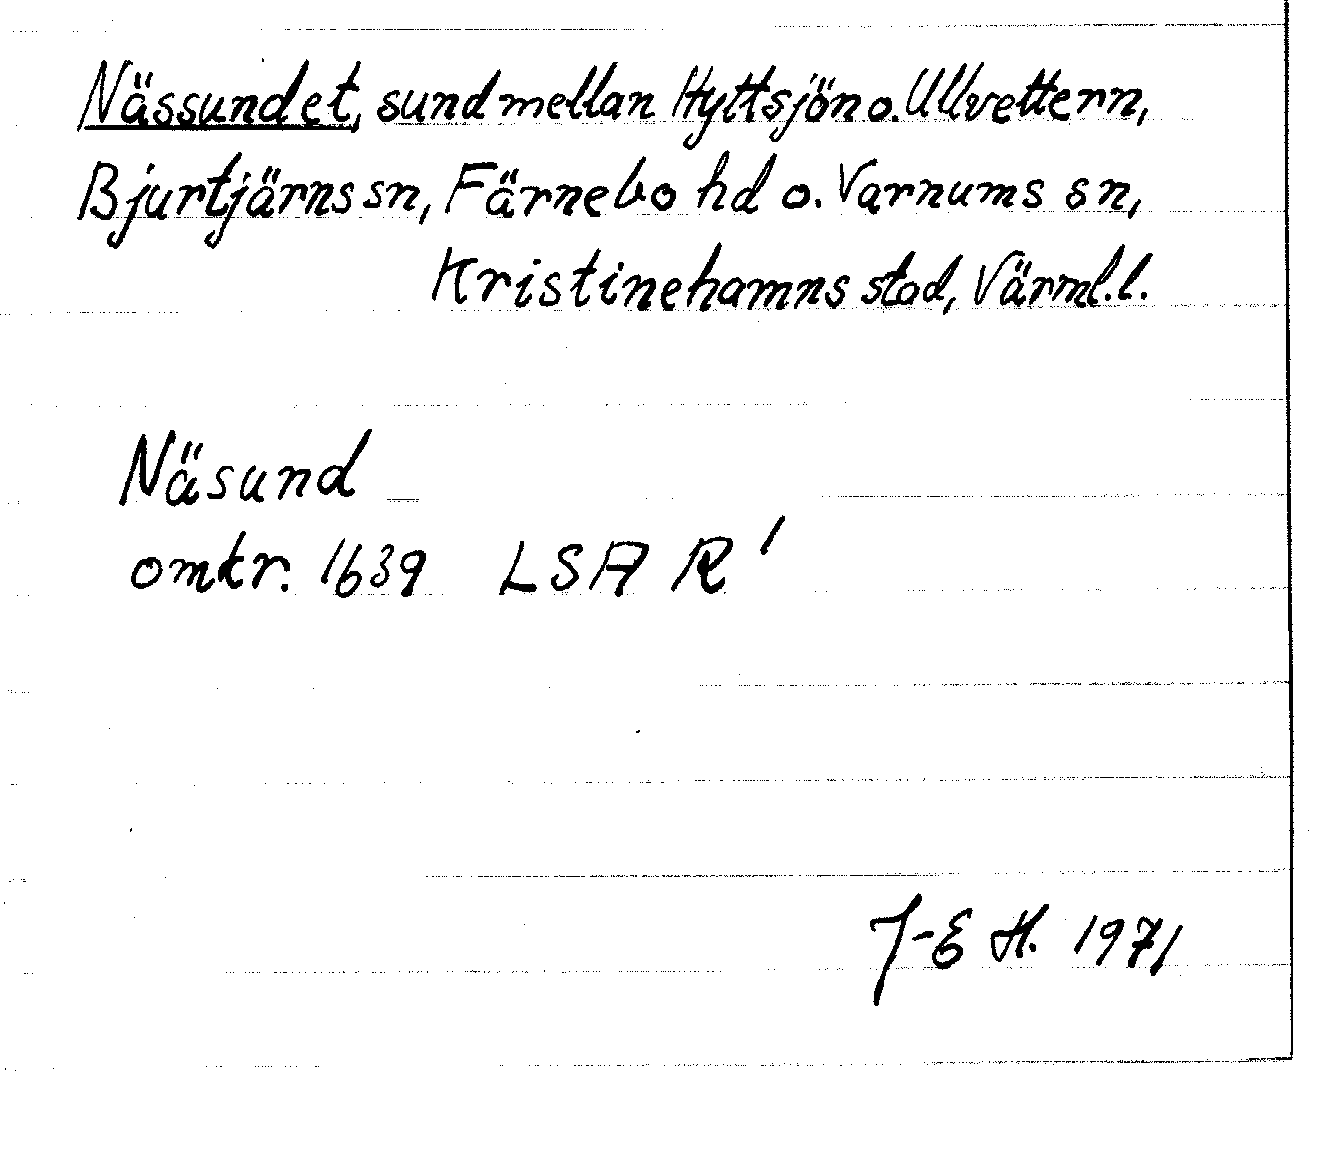 Nässundet, sund mellan Hyttsjön o. Ullvettern,
Bjurtjärns sn, Färnebo hd o. Varnums sn,
Kristinehamns stad, Värml. l.
Näsund
omkr. 1639 LSA R'
J-E H. 1971